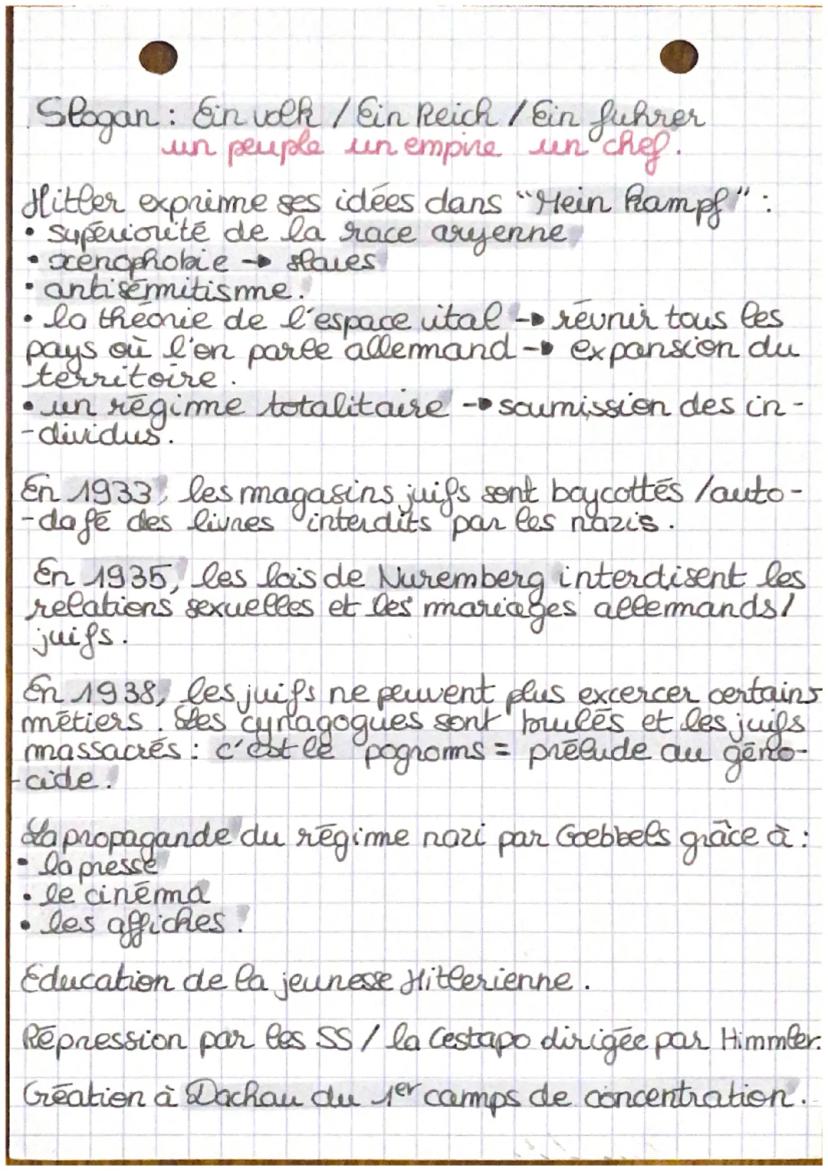 Slogan : Ein volk / Ein Reich / Ein fuhrer
un peuple un empire un chef.
Hitler exprime ses idées dans "Mein Kampf" :
• supériorité de la race aryenne
• xénophobie → slaves
• antisémitisme.
• la théorie de l'espace vital → réunir tous les
pays où l'on parle allemand → expansion du
territoire.
• un régime totalitaire → soumission des in-
-dividus.
En 1933, les magasins juifs sont boycottés / auto-
-dafé des livres interdits par les nazis.
En 1935, les lois de Nuremberg interdisent les
relations sexuelles et les mariages allemands/
juifs.
En 1938, les juifs ne peuvent plus excercer certains
métiers. Les cynagogues sont brulés et les juifs
massacrés : c'est le pogroms = prélude au géno-
-cide.
La propagande du régime nazi par Goebbels grâce à :
• la presse
• le cinéma
• les affiches.
Education de la jeunesse Hitlerienne.
Répression par les SS / la Gestapo dirigée par Himmler.
Création à Dachau du 1er camps de concentration.